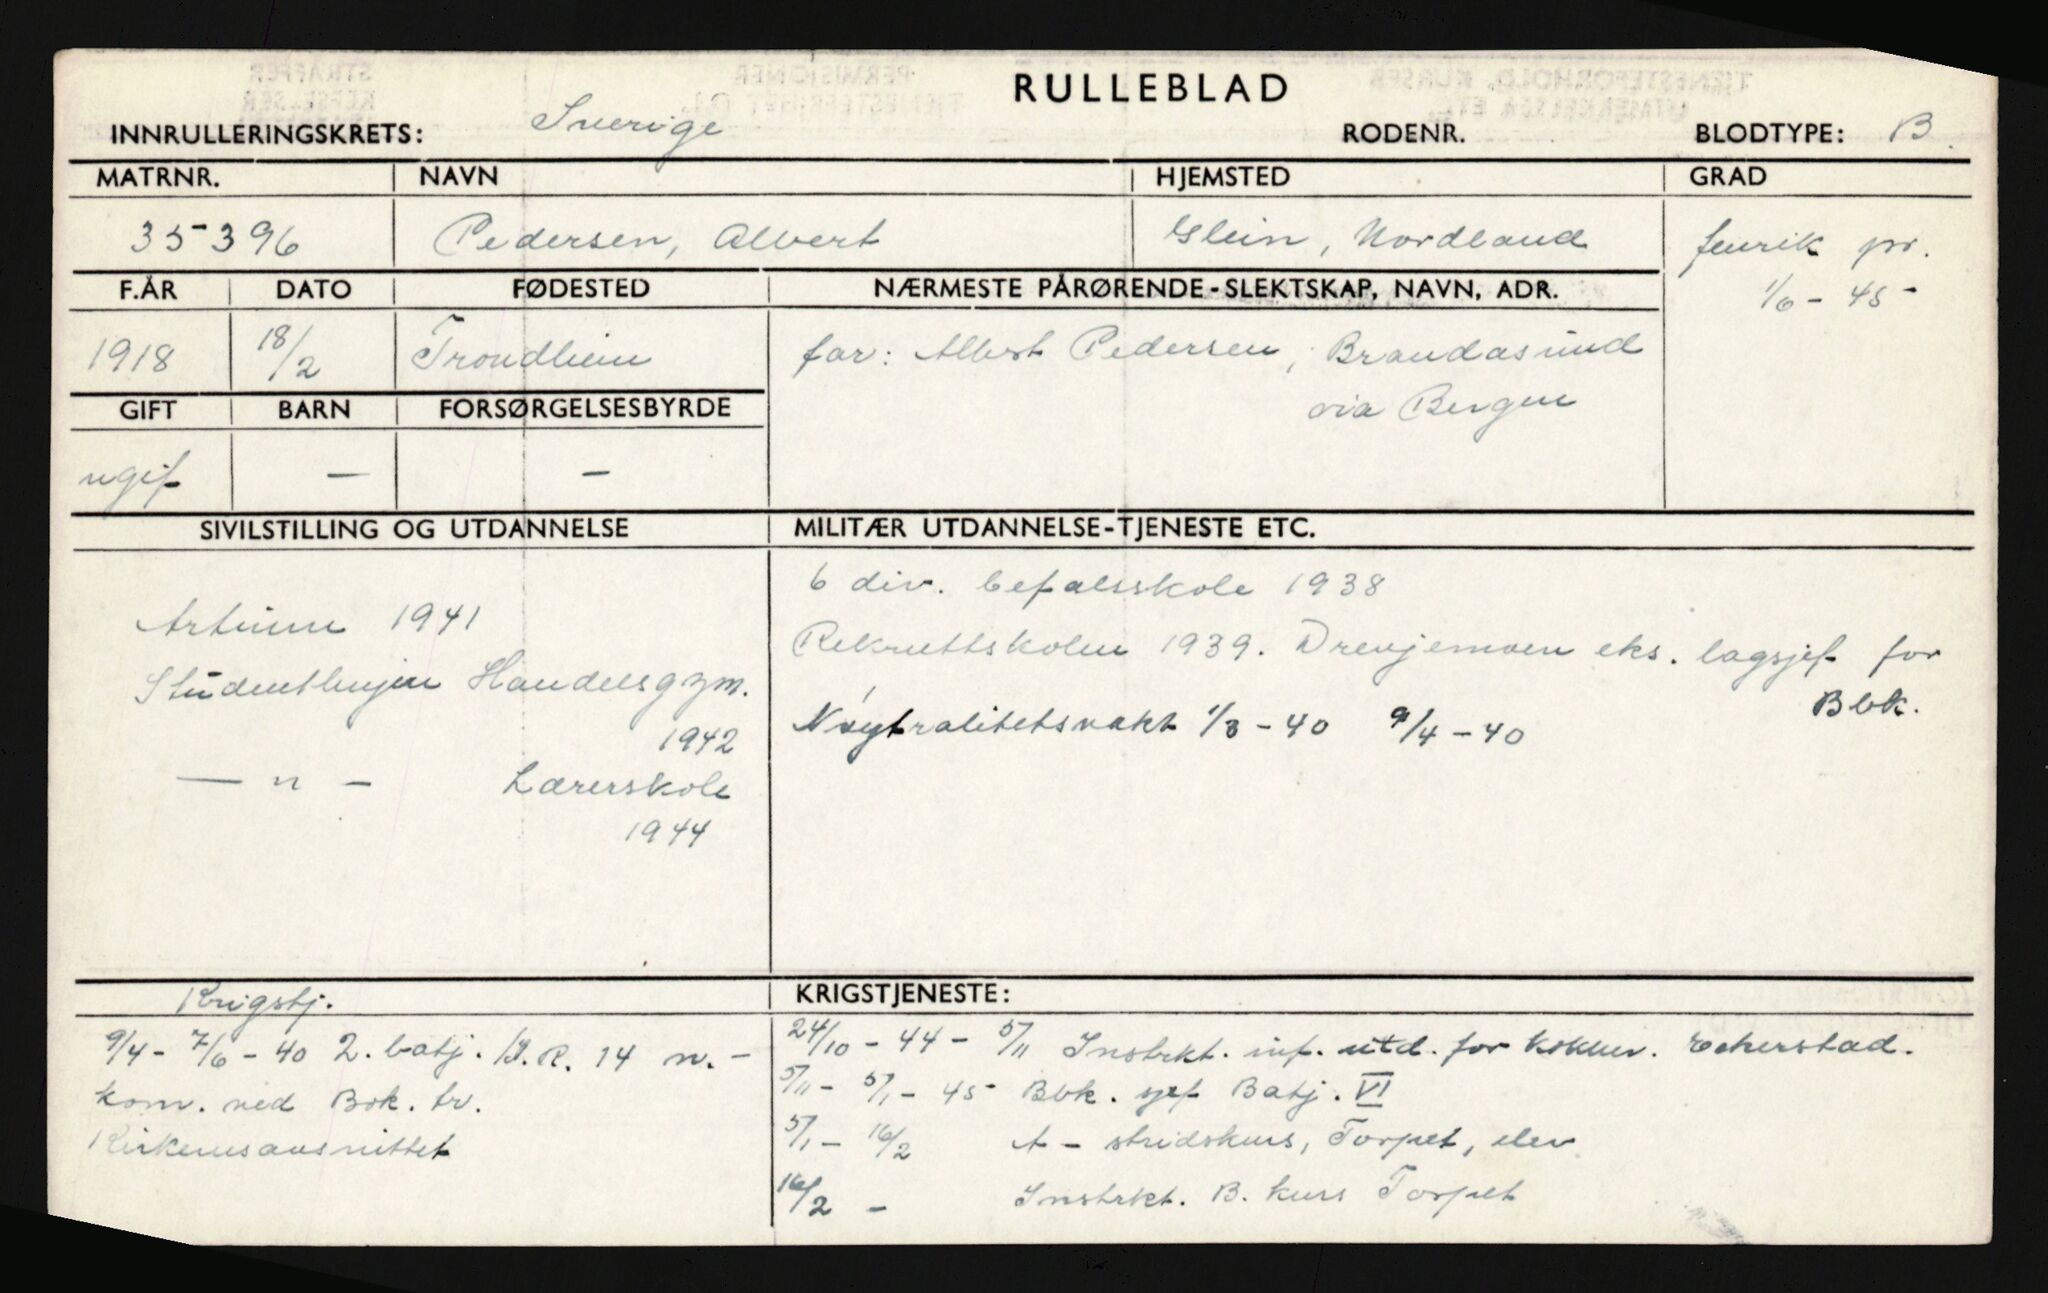 RULLEBLAD
INNRULLERINGSKRETS: Sverige RODENR. BLODTYPE: B
MATRNR. NAVN HJEMSTED GRAD
35396 Pedersen, Albert Glein, Nordland fenrik pr.
1/6 - 45
F.ÅR DATO FØDESTED NÆRMESTE PÅRØRENDE-SLEKTSKAP, NAVN, ADR.
1918 18/2 Trondheim far: Albert Pedersen, Brandasund
via Bergen
GIFT BARN FORSØRGELSESBYRDE
ugif — —
SIVILSTILLING OG UTDANNELSE MILITÆR UTDANNELSE-TJENESTE ETC.
6 div. befalsskole 1938
Artium 1941
Rekruttskolen 1939. Drevjemoen eks. lagsjef for
Bbk.
Studentlinjen Handelsgym.
1942
Nøytralitetsvakt 1/3 - 40 9/4 - 40
— " — Lærerskole
1944
Krigstj. KRIGSTJENESTE:
9/4 - 7/6 - 40 2. batj. I.R. 14 n. -
kom. ved Bok. tr.
Kirkenesavsnittet
24/10 - 44 - 5/11 Instrkt. inf. utd. for kokker. Eckerstad.
5/11 - 5/1 - 45 Bbk. sjef Batj. VI
5/1 - 16/2 A - stridskurs, Torpet, elev
16/2 - Instrkt. B. kurs Torpet